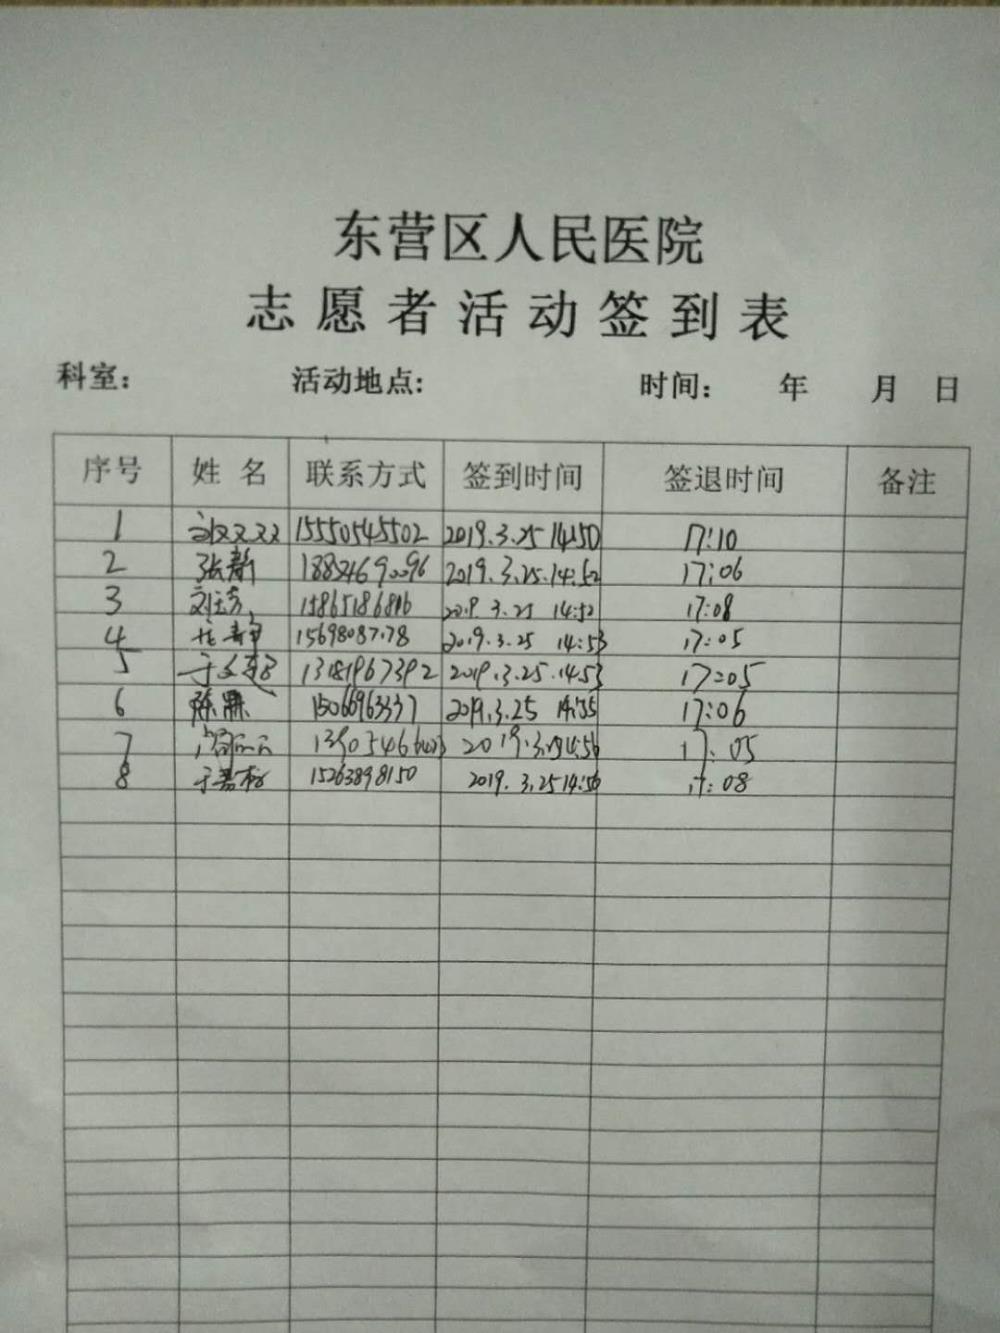 东营区人民医院
志愿者活动签到表
科室： 活动地点： 时间： 年 月 日
序号 姓名 联系方式 签到时间 签退时间 备注
1 15550545502 2019.3.25 14:50 17:10
2 张新 2019.3.25.14:52 17:06
3 15865186816 2019.3.25 14:52 17:08
4 2019.3.25 14:53 17:05
5 13181967392 2019.3.25.14:53 17:05
6 15066963337 2019.3.25 14:55 17:06
7 14:56 17:05
8 15263898150 2019.3.25 14:56 17:08